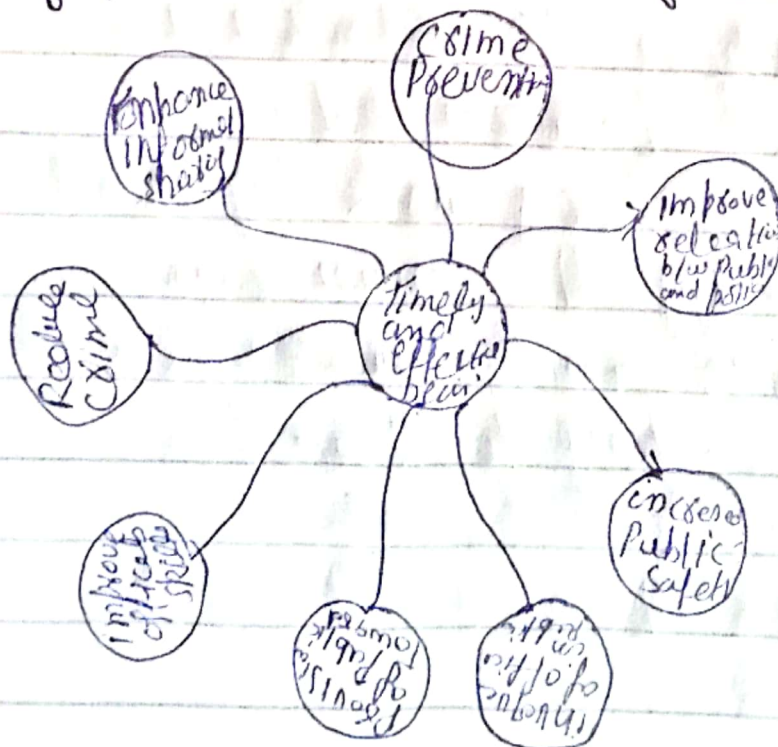 Crime
Preventi
Enhance
Informat
sharing
Improve
relation
b/w Public
and police
Timely
and
effective
Reduce
crime
increase
Public
Safety
improve
skills
Provision
of Public
of office
in
Public